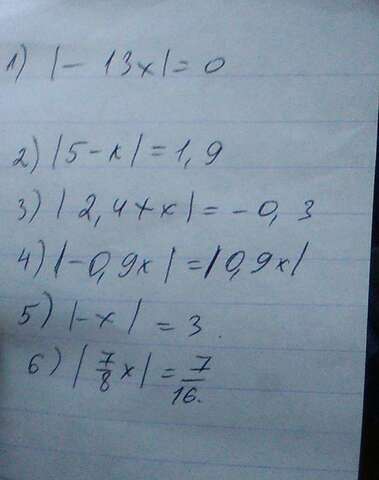 1) |-13x|=0
2) |5-x|=1,9
3) |2,4+x|=-0,3
4) |-0,9x|=|0,9x|
5) |-x|=3.
6) |7/8x|=7/16.